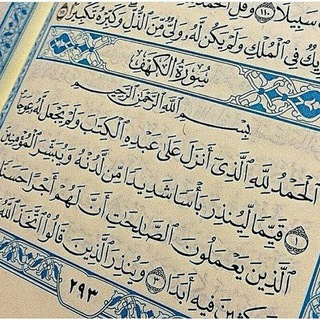 سَبِيلًا ١١٠ وَقُلِ الْحَمْدُ
شَرِيكٌ فِي الْمُلْكِ وَلَمْ يَكُن لَّهُ وَلِيٌّ مِّنَ الذُّلِّ وَكَبِّرْهُ تَكْبِيرًا
سُورَةُ الْكَهْفِ
بِسْمِ اللَّهِ الرَّحْمَٰنِ الرَّحِيمِ
الْحَمْدُ لِلَّهِ الَّذِي أَنزَلَ عَلَىٰ عَبْدِهِ الْكِتَابَ وَلَمْ يَجْعَل لَّهُ عِوَجَا
١ قَيِّمًا لِّيُنذِرَ بَأْسًا شَدِيدًا مِّن لَّدُنْهُ وَيُبَشِّرَ الْمُؤْمِنِينَ
الَّذِينَ يَعْمَلُونَ الصَّالِحَاتِ أَنَّ لَهُمْ أَجْرًا حَسَنًا
مَّاكِثِينَ فِيهِ أَبَدًا ٣ وَيُنذِرَ الَّذِينَ قَالُوا اتَّخَذَ اللَّهُ
٢٩٣